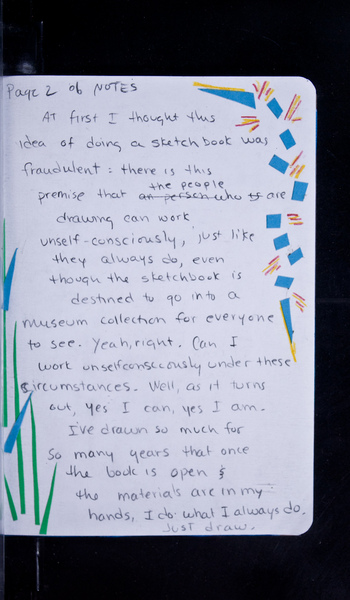 Page 2 of NOTES
At first I thought this
idea of doing a sketchbook was
fraudulent: there is this
the people
premise that an person who is are
drawing can work
unself-consciously, just like
they always do, even
though the sketchbook is
destined to go into a
museum collection for everyone
to see. Yeah, right. Can I
work unselfconsciously under these
circumstances. Well, as it turns
out, yes I can, yes I am.
I've drawn so much for
so many years that once
the book is open &
the materials are in my
hands, I do what I always do.
Just draw.